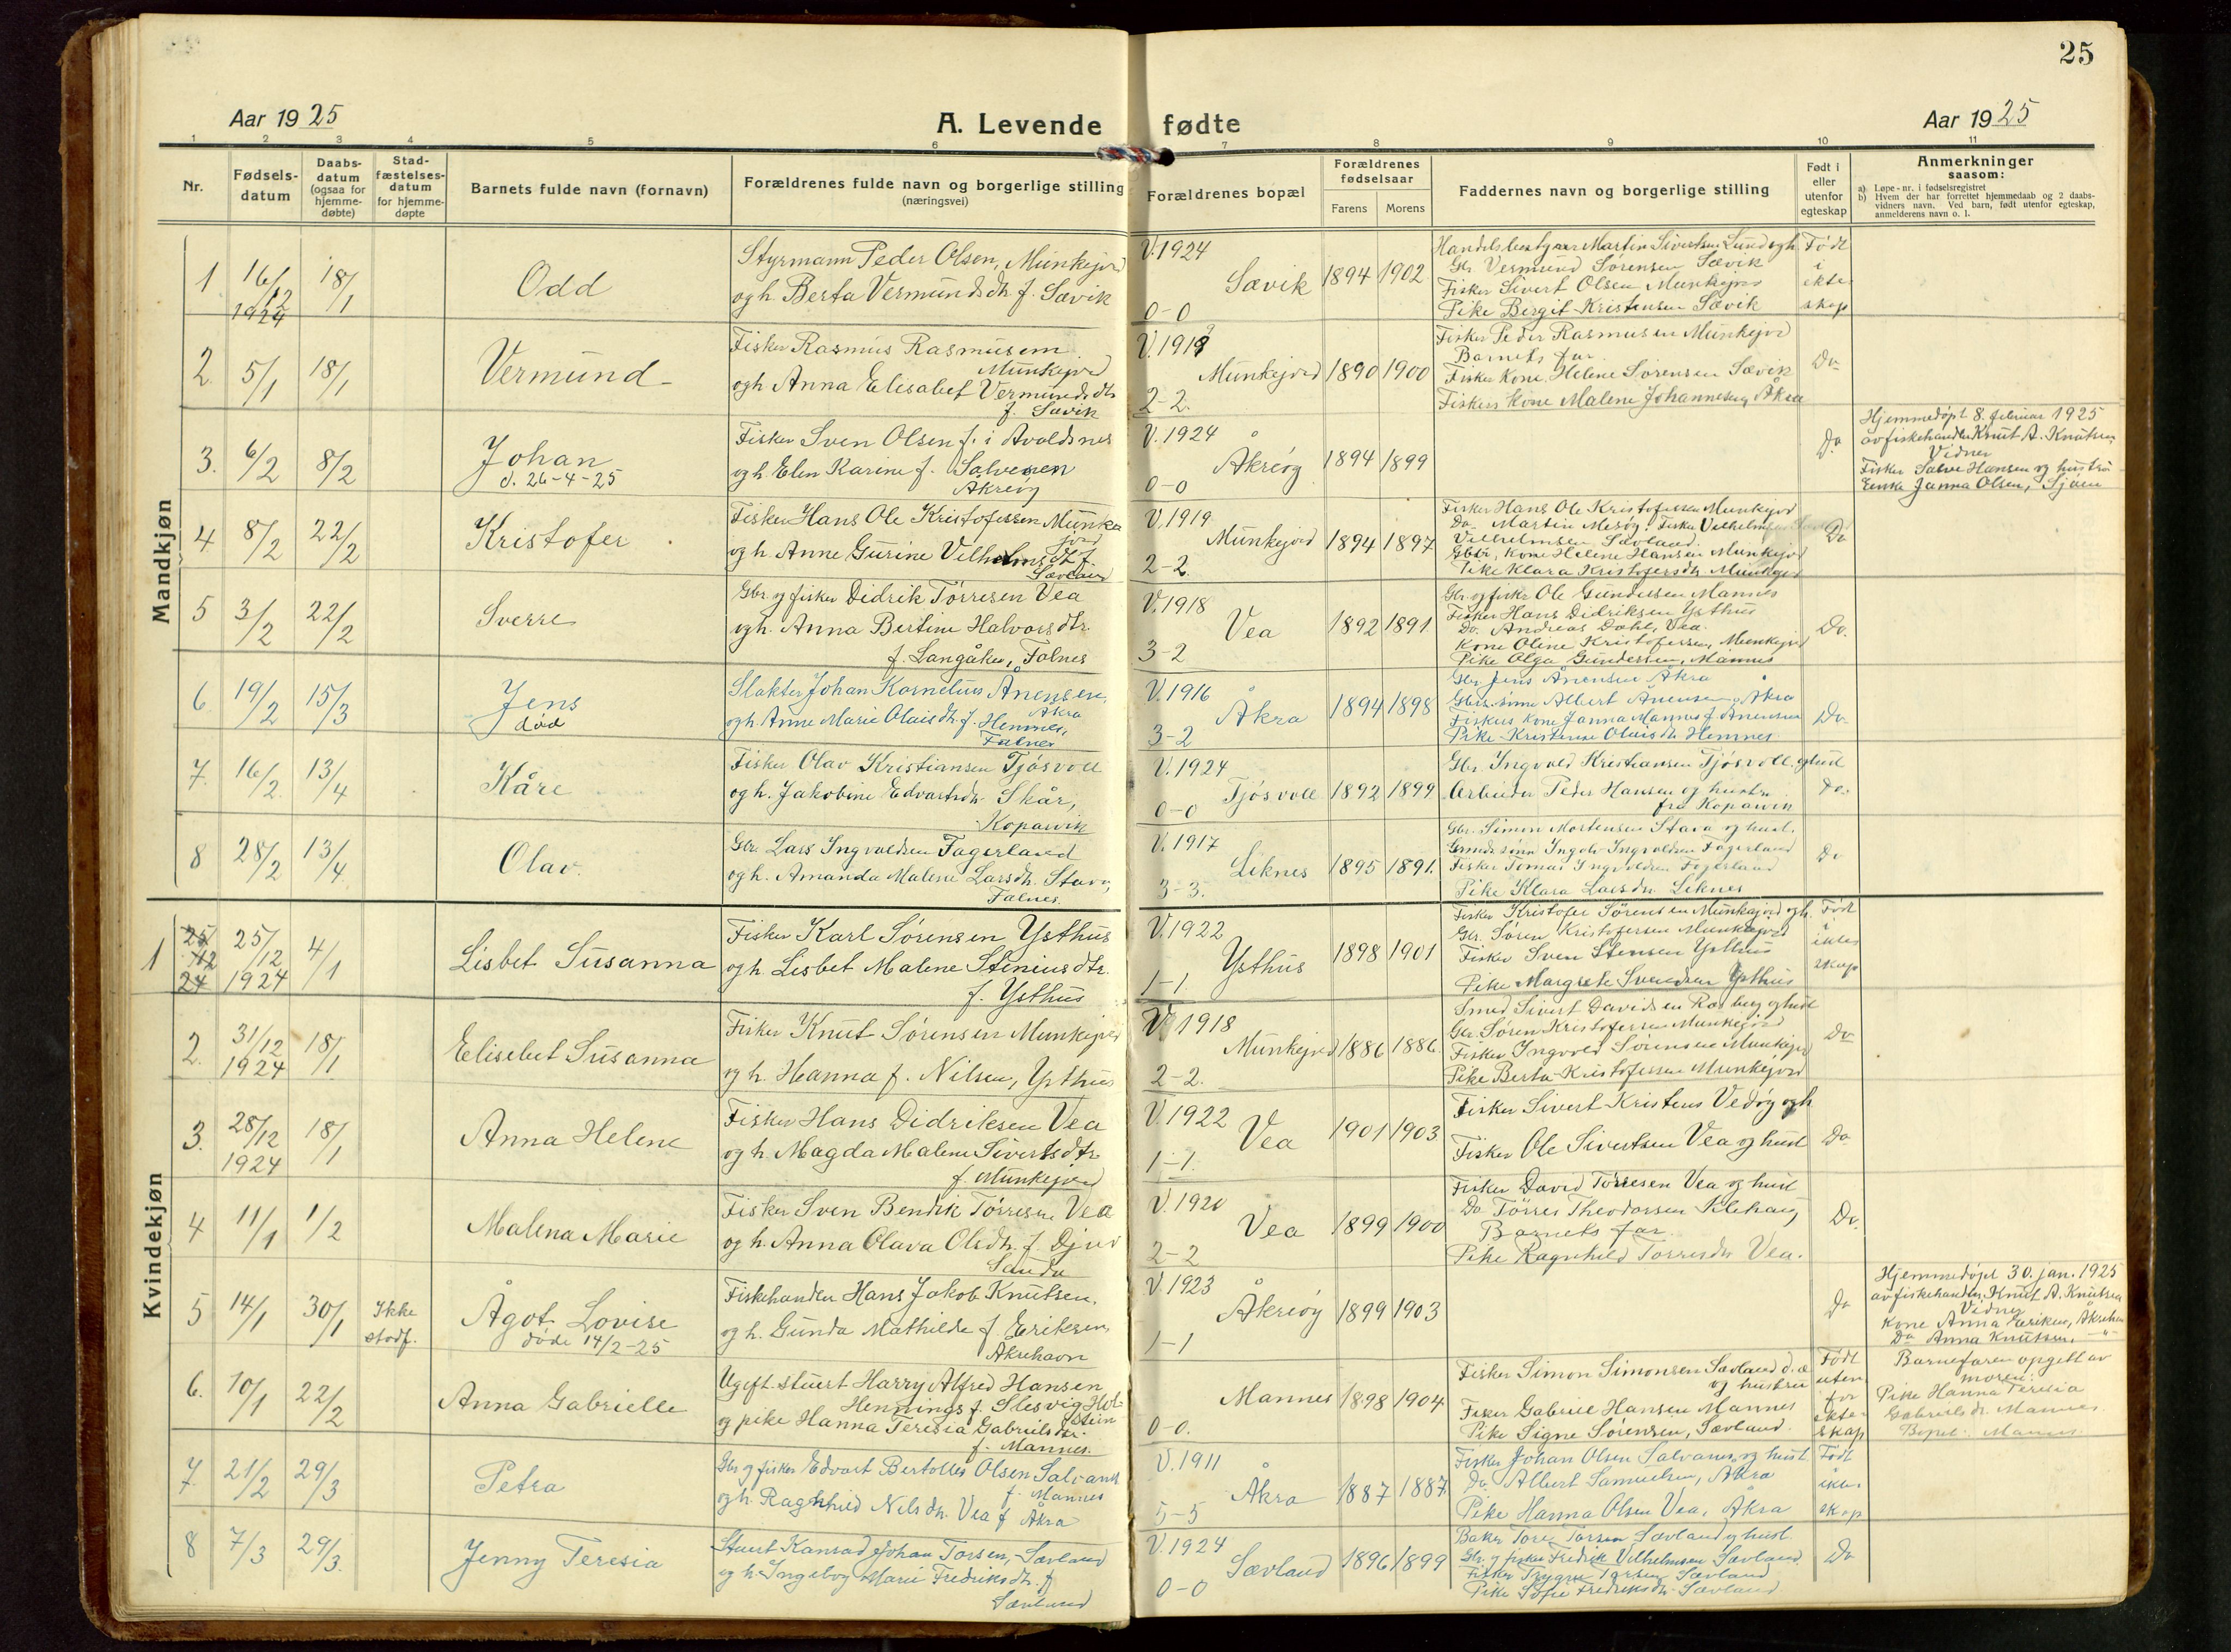 25
Aar 1925
A. Levende fødte
Aar 1925
1 2 3 4 5 6 7 8 9 10 11
Nr.
Fødsels-
datum
Daabs-
datum
(ogsaa for
hjemme-
døbte)
Stad-
fæstelses-
datum
for hjemme-
døpte
Barnets fulde navn (fornavn)
Forældrenes fulde navn og borgerlige stilling
(næringsvei)
Forældrenes bopæl
Forældrenes
fødselsaar
Farens
Morens
Faddernes navn og borgerlige stilling
Født i
eller
utenfor
egteskap
Anmerkninger
saasom:
a) Løpe-nr. i fødselsregistret
b) Hvem der har forrettet hjemmedaab og 2 daabs-
vidners navn. Ved barn, født utenfor egteskap,
anmelderens navn o. l.
Mandkjøn
1
16/12
1924
18/1
Odd
Styrmann Peder Olsen, Munkejord
og h. Berta Vermundsdtr. f. Sævik
V. 1924
Sævik
0-0
1894
1902
Handelsbestyrer Martin Sivertsen Lund og h.
Gbr. Vermund Sørensen Sævik
Fisker Sivert Olsen Munkejord
Pike Bergit Kristensen Sævik
Født
i
ekte-
skap
2.
5/1
18/1
Vermund
Fisker Rasmus Rasmussen
Munkejord
og h. Anna Elisabet Vermundsdtr
f. Sævik
V. 1919
Munkejord
2-2.
1890
1900
Fisker Peder Rasmusen Munkejord
Barnets far
Fisker Kone Helene Sørensen Sævik
Fiskers Kone Malene Johannesen, Åkra
Do
3.
6/2
8/2
Johan
d. 26-4-25
Fisker Sven Olsen f. i Avaldsnes
og h. Elen Karine f. Salvesen
Akreøy
V. 1924
Åkreøy
0-0
1894
1899
Do
Hjemmedøpt 8. februar 1925
av fiskehandler Knut A. Knutsen
Vidner
Fisker Salve Hansen og hustru
Enke Janna Olsen, Sjøen
4
8/2
22/2
Kristofer
Fisker Hans Ole Kristofersen Munke
jord
og h. Anne Gurine Velhelmsdtr f.
Sævland
V. 1919
Munkejord
2-2.
1894
1897
Fisker Hans Ole Kristofersen Munkejord
Do. Martin Mesøy. Fisker Velhelm
Velhelmsen Sævland.
Gbr. Kone Helene Hansen Munkejord
Pike Klara Kristofersdtr. Munkejord
Do
5
3/2
22/2
Sverre
Gbr. og fisker Didrik Tørresen Vea
og h. Anna Bertine Halvorsdtr.
f. Langåker, Falnes
V. 1918
Vea
3-2
1892
1891
Gbr. og fisker Ole Gundersen Mannes
Fisker Hans Didriksen Ysthus
Do. Andreas Dahl, Vea.
Kone Oline Kristofersen, Munkejord
Pike Olga Gundersen, Mannes
Do.
6
19/2
15/3
Jens
död
Slakter Johan Kornelius Ånensen,
Åkra
og h. Anne Marie Olaisdtr. f. Hemnes,
Falnes
V. 1916
Åkra
3-2
1894
1898
Gbr. Jens Ånensen Åkra
Gbrs. sønn Albert Ånensen, Åkra
Fiskers kone Janna Mannes f. Ånensen
Pike Kristense Olaisdtr. Hemnes
Do
7.
16/2.
13/4
Kåre
Fisker Olav Kristiansen Tjøsvoll
og h. Jakobine Edvartsdtr. Skår,
Kopavik
V. 1924
Tjøsvoll
0-0
1892
1899
Gbr. Ingvald Kristiansen Tjøsvoll og hust
Arbeider Peder Hansen og hustru
fra Kopavik
Do.
8
28/2
13/4
Olav.
Gbr. Lars Ingvaldsen Fagerland
og h. Amanda Malene Larsdtr. Stava,
Falnes.
V. 1917
Liknes
3-3.
1895
1891.
Gbr. Simon Mortensen Stava og hust.
Ingolv Ingvaldsen Fagerland
Fisker Tomas Ingvaldsen Fagerland
Pike Klara Larsdtr. Liknes
Do
Kvindekjøn
1
25/12
24
25/12
1924
4/1
Lisbet Susanna
Fisker Karl Sørensen Ysthus
og h. Lisbet Malene Steniusdtr.
f. Ysthus
V. 1922
Ysthus
1-1.
1898
1901
Fisker Kristofer Sørensen Munkejord og h.
Gbr. Søren Kristofersen Munkejord
Fisker Sven Stensen Ysthus
Pike Margrete Svendsen Ysthus
Født
i
ekte
skap
2.
31/12
1924
18/1
Elisebet Susanna
Fisker Knut Sørensen Munkejord
og h. Hanna f. Nilsen, Ysthus
V. 1918
Munkejord
2-2.
1886
1886.
Smed Sivert Davidsen og hust
Gbr. Søren Kristofersen Munkejord
Fisker Ingvald Sørensen Munkejord
Pike Berta Kristofersen Munkejord
Do
3.
28/12
1924
18/1
Anna Helene
Fisker Hans Didriksen Vea
og h. Magda Malene Sivertsdtr
f. Munkejord
V. 1922
Vea
1-1.
1901
1903
Fisker Sivert Kristens Vedøy og h
Fisker Ole Sivertsen Vea og hust
Do
4
11/1
1/2
Malena Marie
Fisker Sven Bendik Tørresen Vea
og h. Anna Olava Olsdtr. f. Djuv
Sauda
V. 1920
Vea
2-2
1899
1900
Fisker David Tørresen Vea og hust
Do Tørres Theodorsen Klehaug
Barnets far.
Pike Ragnhild Tørresdtr Vea.
Do.
5
14/1
30/1
Ikke
stadf.
Ågot Lovise
døde 14/2-25
Fiskehandler Hans Jakob Knutsen,
og h. Gunda Mathilde f. Eriksen,
Åkrehavn
V. 1923
Åkreøy
1-1
1899
1903
Do
Hjemmedøpt 30. jan. 1925
av fiskehandler Knut A. Knutsen
Vidner
Kone Anna Eriksen, Åkrehavn
Do Anna Knutsen, —"—
6.
10/1
22/2
Anna Gabrielle
Ugift stuert Harry Alfred Hansen
Hennings f. Slesvig Hol-
stein
og pike Hanna Teresia Gabrielsdtr.
f. Mannes.
Mannes
0-0.
1898
1904
Fisker Simon Simonsen Sævland d. æ
og hustru
Fisker Gabriel Hansen Mannes
Pike Signe Sørensen, Sævland
Født
uten-
for
ekte-
skap
Barnefaren opgitt av
moren:
Pike Hanna Teresia
Gabrielsdtr. Mannes.
Bopel: Mannes.
7.
21/2
29/3
Petra
Gbr og fisker Edvart Bertolles Olsen Salvanes
f. Mannes
og h. Ragnhild Nilsdtr. Vea f Åkra
V. 1911
Åkra
5-5
1887
1887.
Fisker Johan Olsen Salvanes og hust.
Do. Albert Samuelsen, Åkra
Pike Hanna Olsen Vea, Åkra
Født
i ek
skap
8
7/3
29/3.
Jenny Teresia
Stuert Konrad Johan Torsen, Sævland
og h. Ingeborg Marie Fredriksdtr. f
Sævland
V. 1924
Sævland
0-0
1896
1899
Baker Tore Torsen Sævland og hust
Gbr. og fisker Fredrik Vilhelmsen Sævland.
Fisker Trygve Torsen Sævland
Pike Sofie Fredriksdtr. Sævland
Do